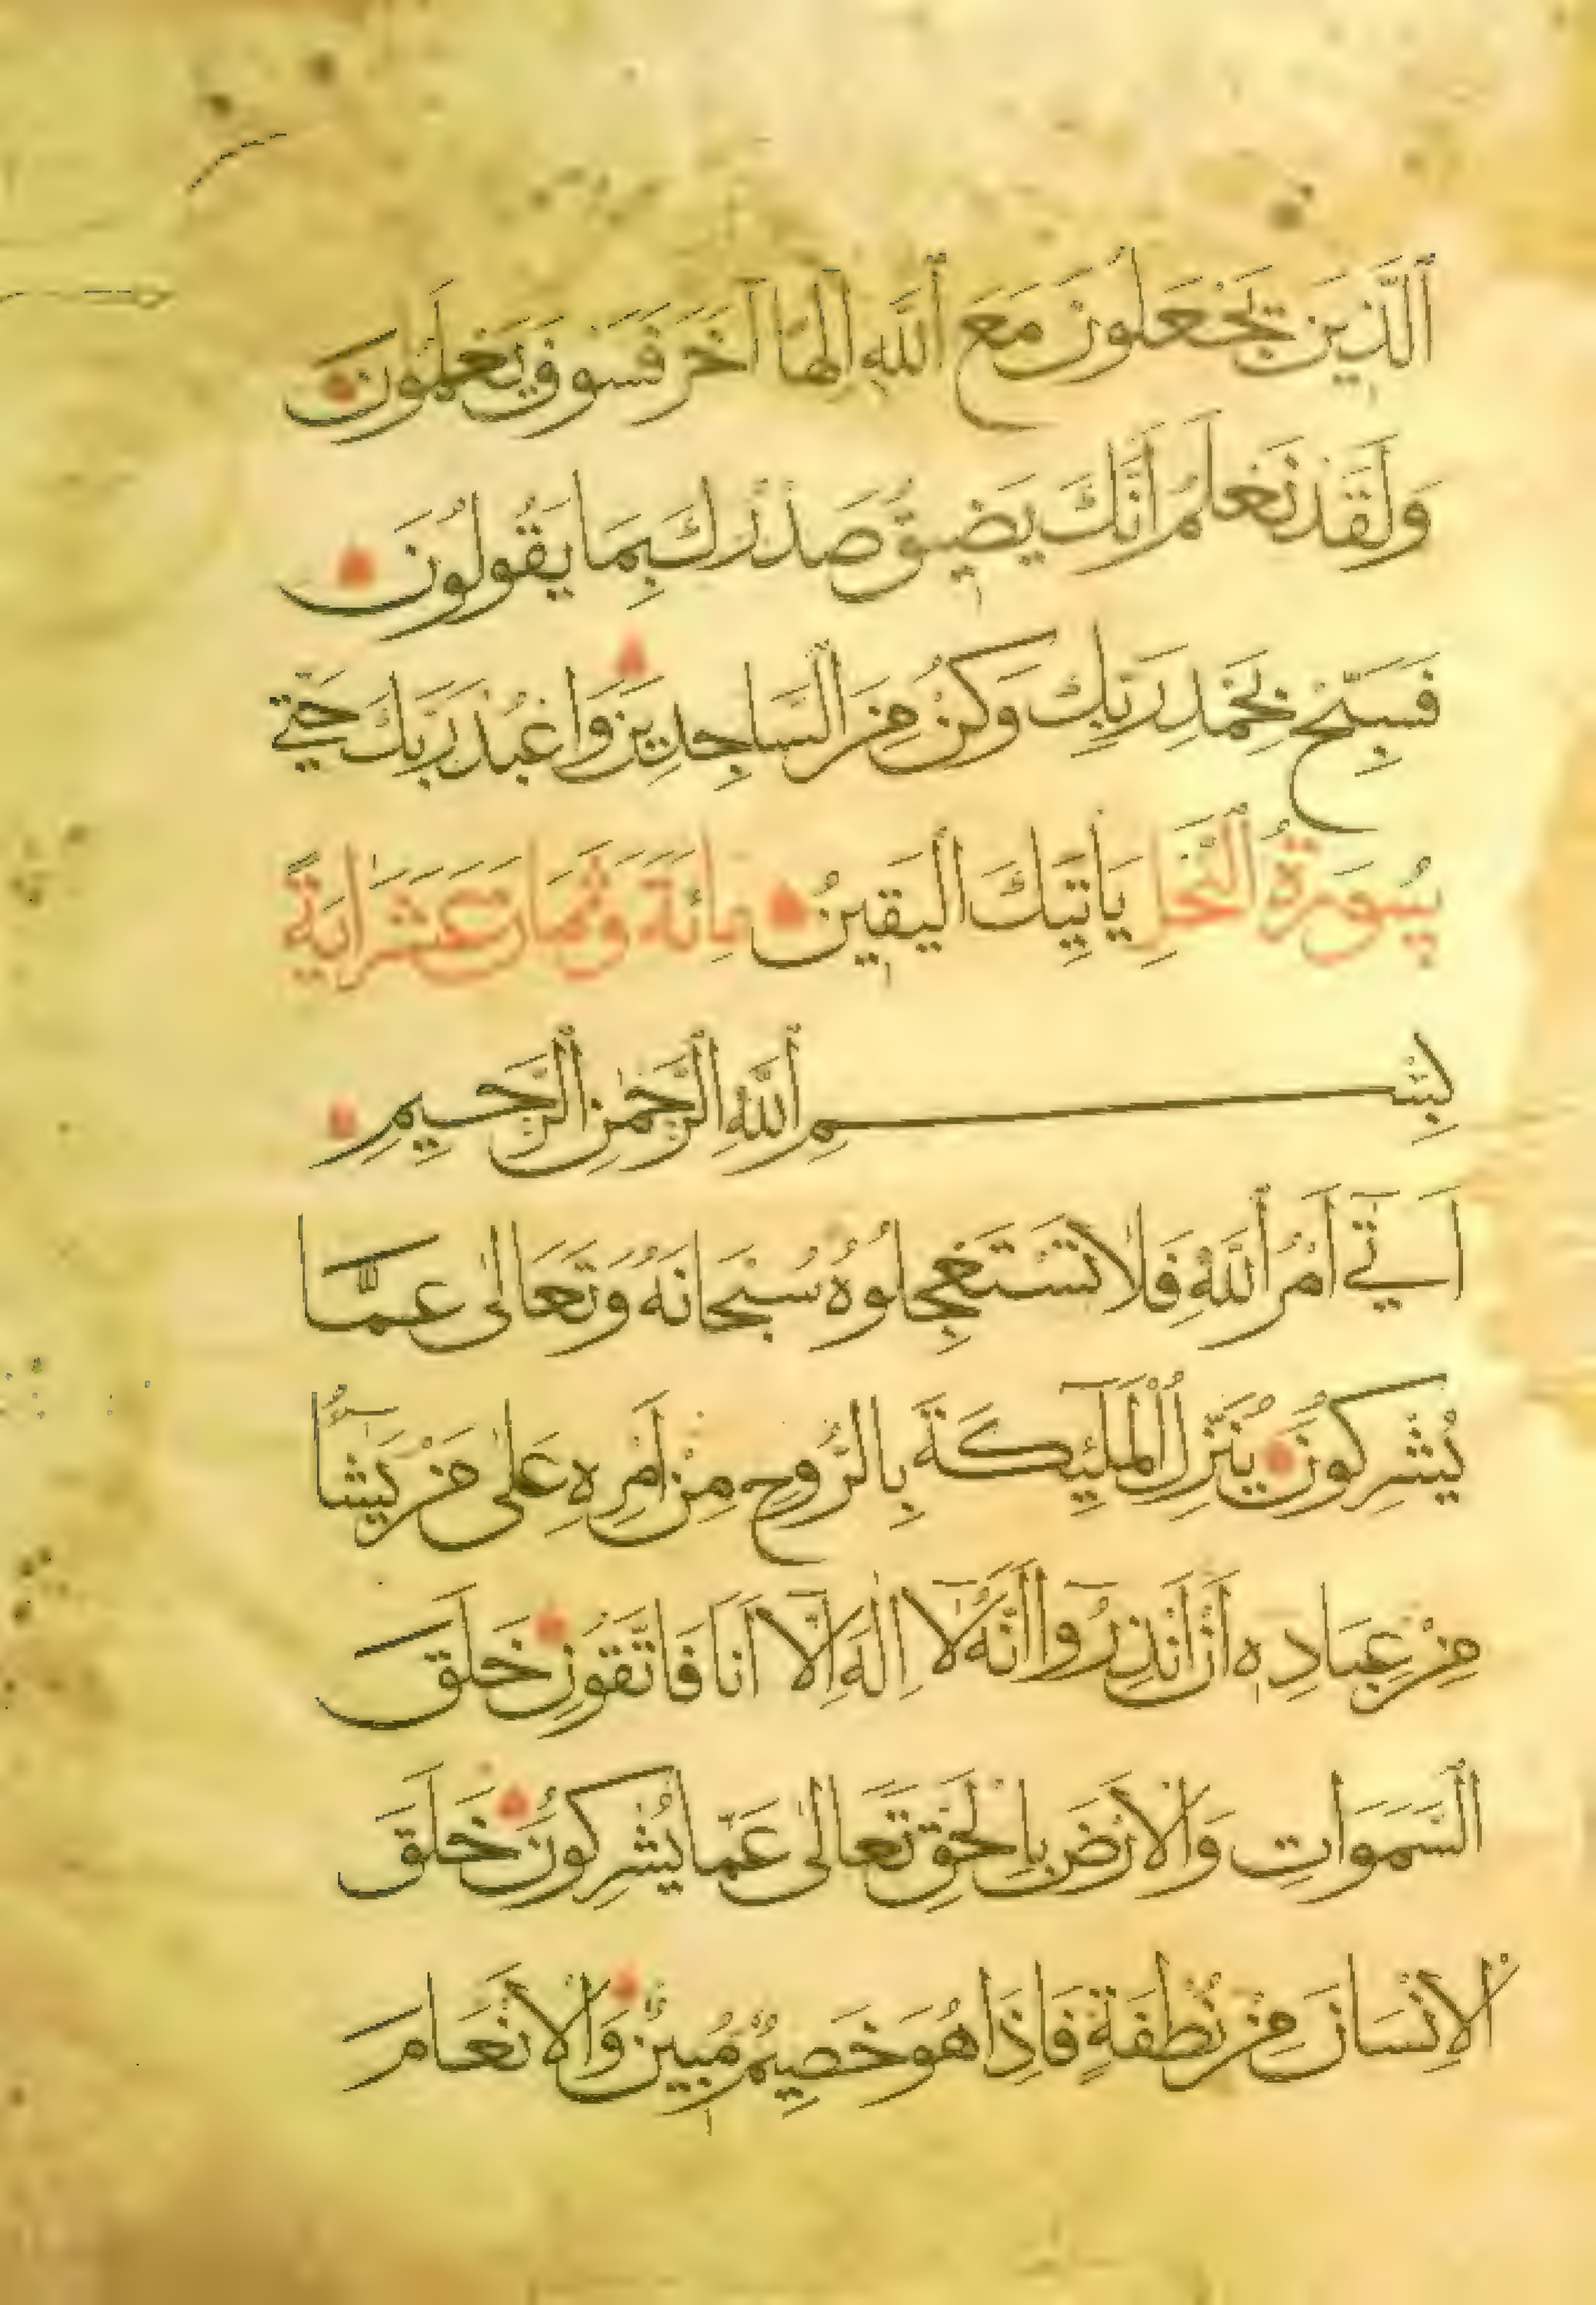 اَلَّذِينَ يَجْعَلُونَ مَعَ اَللّٰهِ اِلٰهًا آخَرَ فَسَوْفَ يَعْلَمُونَ
وَلَقَدْ نَعْلَمُ اَنَّكَ يَضِيقُ صَدْرُكَ بِمَا يَقُولُونَ
فَسَبِّحْ بِحَمْدِ رَبِّكَ وَكُنْ مِنَ السَّاجِدِينَ وَاعْبُدْ رَبَّكَ حَتّٰى
سُورَةُ النَّحْلِ يَاْتِيَكَ الْيَقِينُ مِائَةٌ وَثَمَانِ عَشَرَ اٰيَةً
بِسْمِ اللّٰهِ الرَّحْمٰنِ الرَّحِيمِ
اَتٰى اَمْرُ اللّٰهِ فَلَا تَسْتَعْجِلُوهُ سُبْحَانَهُ وَتَعَالٰى عَمَّا
يُشْرِكُونَ يُنَزِّلُ الْمَلٰٓئِكَةَ بِالرُّوحِ مِنْ اَمْرِهِ عَلٰى مَنْ يَشَاءُ
مِنْ عِبَادِهِ اَنْ اَنْذِرُوا اَنَّهُ لَا اِلٰهَ اِلَّا اَنَا فَاتَّقُونِ خَلَقَ
السَّمَوَاتِ وَالْاَرْضَ بِالْحَقِّ تَعَالٰى عَمَّا يُشْرِكُونَ خَلَقَ
الْاِنْسَانَ مِنْ نُطْفَةٍ فَاِذَا هُوَ خَصِيمٌ مُبِينٌ وَالْاَنْعَامَ